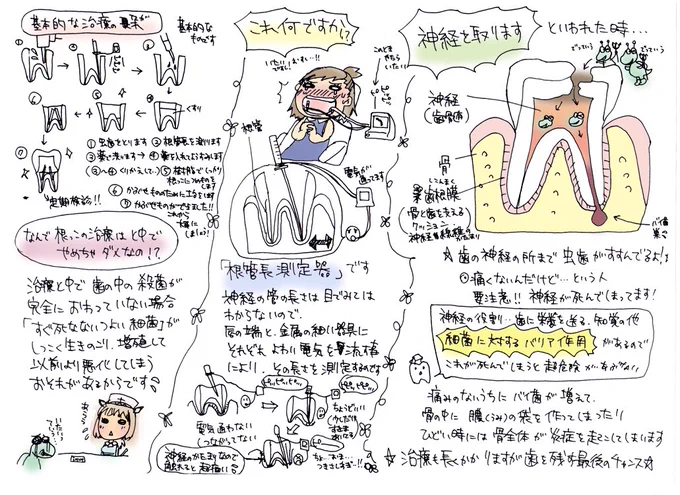 基本的な治療の事が
基本的な
ものです
くすり
① 虫歯をとります → ② 根管長を測ります
③ 薬で洗います → ④ 薬を入れておふたします
③〜④ くりかえして…
⑥ かぶせもののために土台をします
⑦ かぶせものができました!!
これから
大事に
しましょう!
定期検診!!
なんで根っこの治療はと中で
やめちゃダメなの!?
治療と中で歯の中の殺菌が
完全におわっていない場合
「すぐ死なないつよい細菌」が
しつこく生きのこり、増殖して
以前より悪化してしまう
おそれがあるからです
これ、何ですか!?
いたい
ですー!
根管
電気が
通ってます
「根管長測定器」です
神経の管の長さは目でみては
わからないので、
唇の端と、金属の細い器具に
それぞれよわい電気を流す
により、その長さを測定するのです
ピッピッピッ
電気通わない
つながってない
ちょうどいい
神経のかたまりなので
触れると超痛い
神経を取ります といわれた時…
でっていう
でっていう
神経
(歯髄)
骨
歯根膜
(骨と歯を支える)
クッション
バイ菌
巣
☆ 歯の神経の所まで虫歯がすすんでるよ!!
痛くないんだけど…という人
要注意!! 神経が死んでしまってます!
神経の役割…歯に栄養を送る、知覚の他
細菌に対するバリア作用 があるので
これが死んでしまうと超危険
痛みのないうちにバイ菌が増えて、
骨の中に膿(うみ)の袋を作ってしまったり
ひどい時には骨全体が炎症を起こしてしまいます
☆ 治療も長くかかりますが歯を残す最後のチャンス